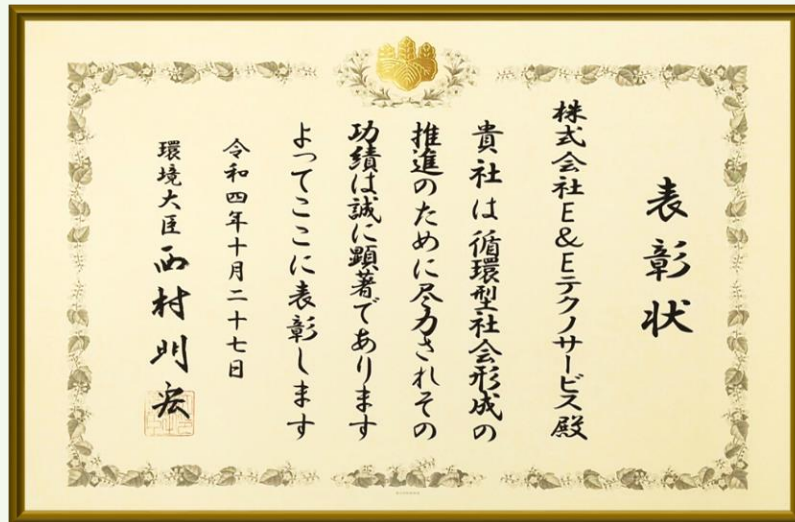 表彰状
株式会社E&Eテクノサービス殿
貴社は循環型社会形成の
推進のために尽力されその
功績は誠に顕著であります
よってここに表彰します
令和四年十月二十七日
環境大臣 西村明宏